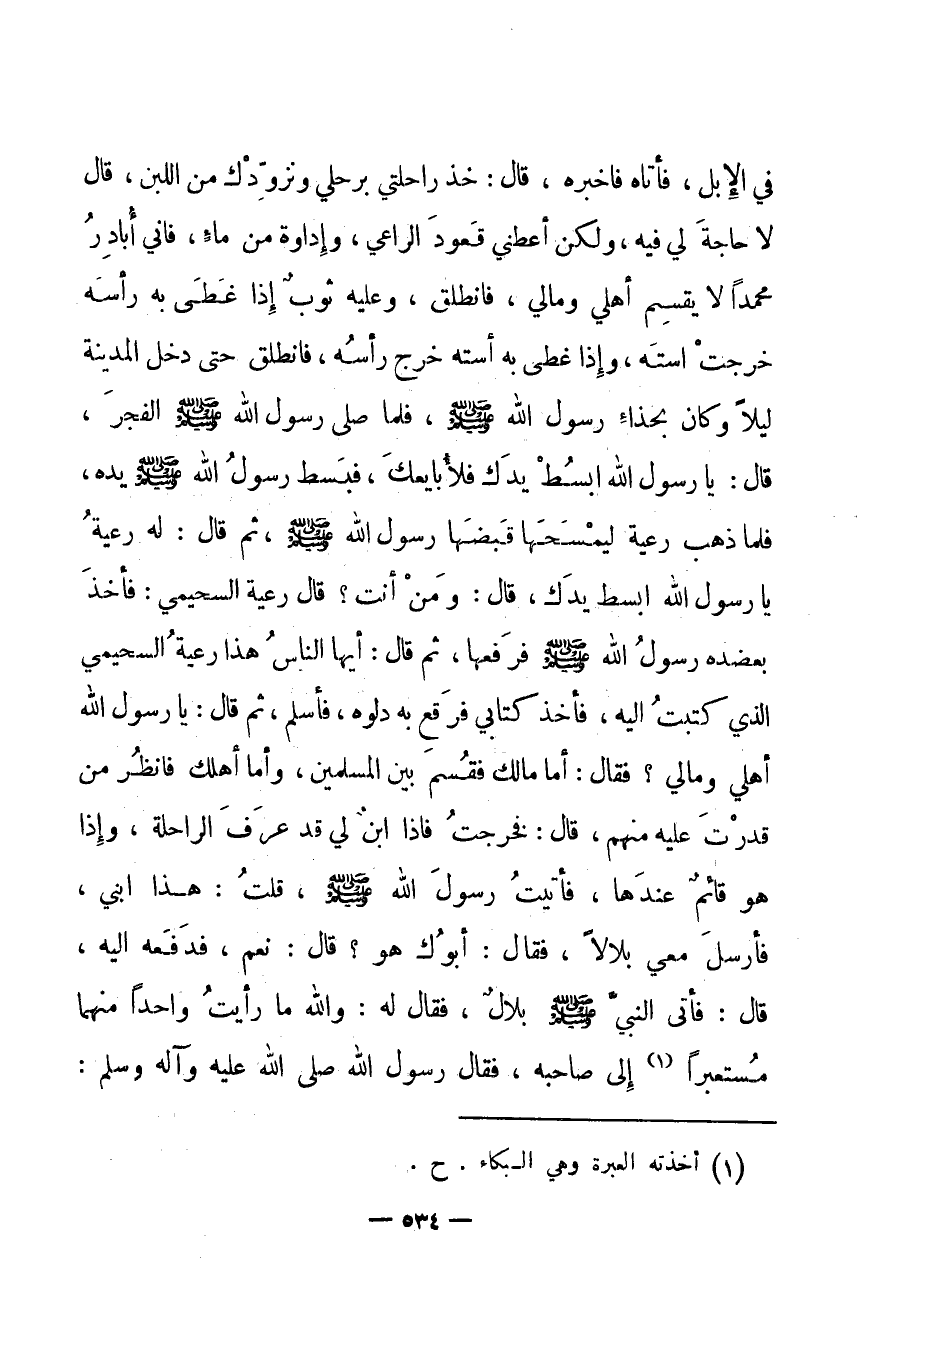 في الإِبل ، فأتاه فاخبره ، قال : خذ راحلتي برحلي ونزوِّدْك من اللبن ، قال
لا حاجةَ لي فيه ، ولكن أعطني قَعودَ الراعي ، وإِداوة من ماءٍ ، فاني أُبادِرُ
محمداً لا يقسِم أهلي ومالي ، فانطلق ، وعليه ثوبٌ إِذا غَطَى به رأسَه
خرجتْ استَه ، وإِذا غطى به أسته خرج رأسُه ، فانطلق حتى دخل المدينة
ليلاً وكان بحذاء رسول الله ﷺ ، فلما صلى رسول الله ﷺ الفجرَ ،
قال : يا رسول الله ابسُطْ يدَك فلأُبايعكَ ، فبَسط رسولُ الله ﷺ يده ،
فلما ذهب رعية ليمْسَحَها قَبضَها رسول الله ﷺ ، ثم قال : له رعيةُ
يا رسول الله ابسط يدَك ، قال : ومَنْ أنت ؟ قال رعية السحيمي : فأخذَ
بعضده رسولُ الله ﷺ فرَفعها ، ثم قال : أيها الناسُ هذا رعيةُ السحيمي
الذي كتبتُ اليه ، فأخذ كتابي فرَقع به دلوه ، فأسلم ، ثم قال : يا رسول الله
أهلي ومالي ؟ فقال : أما مالك فقُسمَ بين المسلمين ، وأما أهلك فانظُر من
قدرْتَ عليه منهم ، قال : فخرجتُ فاذا ابنٌ لي قد عرَفَ الراحلة ، وإِذا
هو قائمٌ عندَها ، فأتيتُ رسولَ الله ﷺ ، قلتُ : هـذا ابني ،
فأرسلَ معي بلالاً ، فقال : أبوُك هو ؟ قال : نعم ، فدَفَعه اليه ،
قال : فأتى النبيَّ ﷺ بلالٌ ، فقال له : والله ما رأيتُ واحداً منهما
مُستعبراً (١) إِلى صاحبه ، فقال رسول الله صلى الله عليه وآله وسلم :
(١) أخذته العبرة وهي البكاء . ح .
— ٥٣٤ —